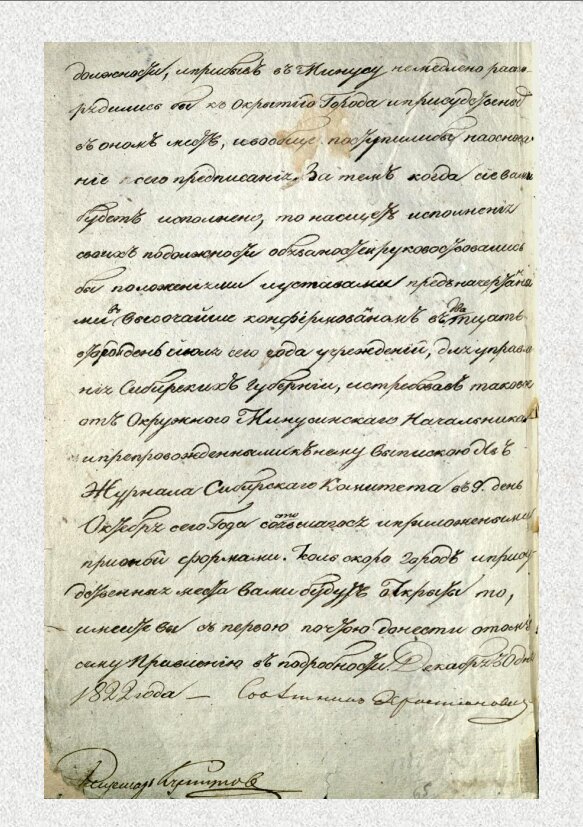 должности, и прибывъ въ Минусу немедлено распо-
редились бы къ окрытію Города и присудственыхъ
въ ономъ местъ, и вообще поступилибы на основа-
ніе сего предписанія. За темъ когда сіе вами
будетъ исполнено, то насщетъ исполненія
своихъ подолжности обезаностей руководствовались
бы положеніями и уставами предъначертаны
ми въ Высочайше конфермованомъ въ дватцать
второй день іюля сего года учрежденій, для управле
нія Сибирскихъ Губерній, истребовавъ таковыя
отъ Окружного Минусинскаго Начальника
и препровожденными къ нему выпискою Изъ
Журнала Сибирскаго Комитета въ 9. день
Октября сего Года состоявшагося и приложеными
при оной формами. Коль скоро городъ и прису
дственныя места вами будутъ открыты то,
имеите вы съ первою почтою донести о томъ
сему Правленію въ подробности. Декабря 30 дня
1822 года — Советникъ